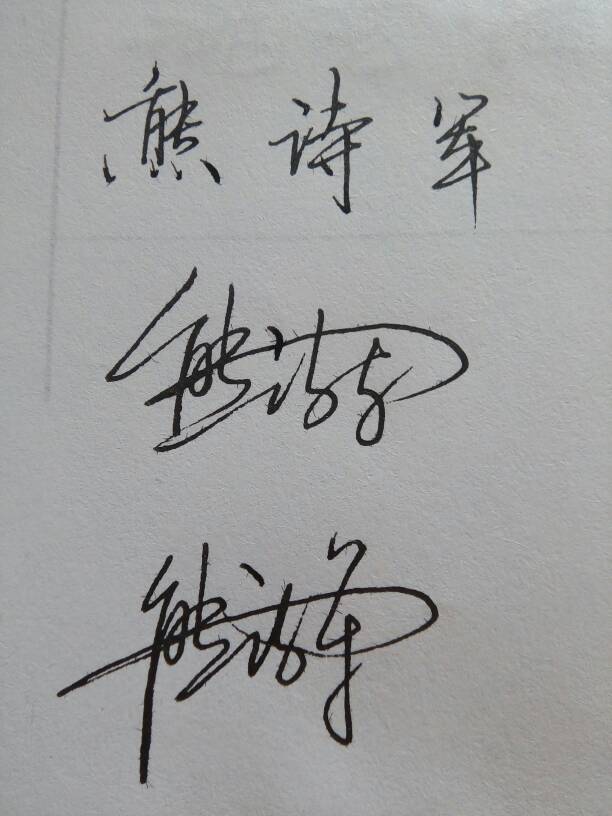 熊诗军
熊诗军
熊诗军